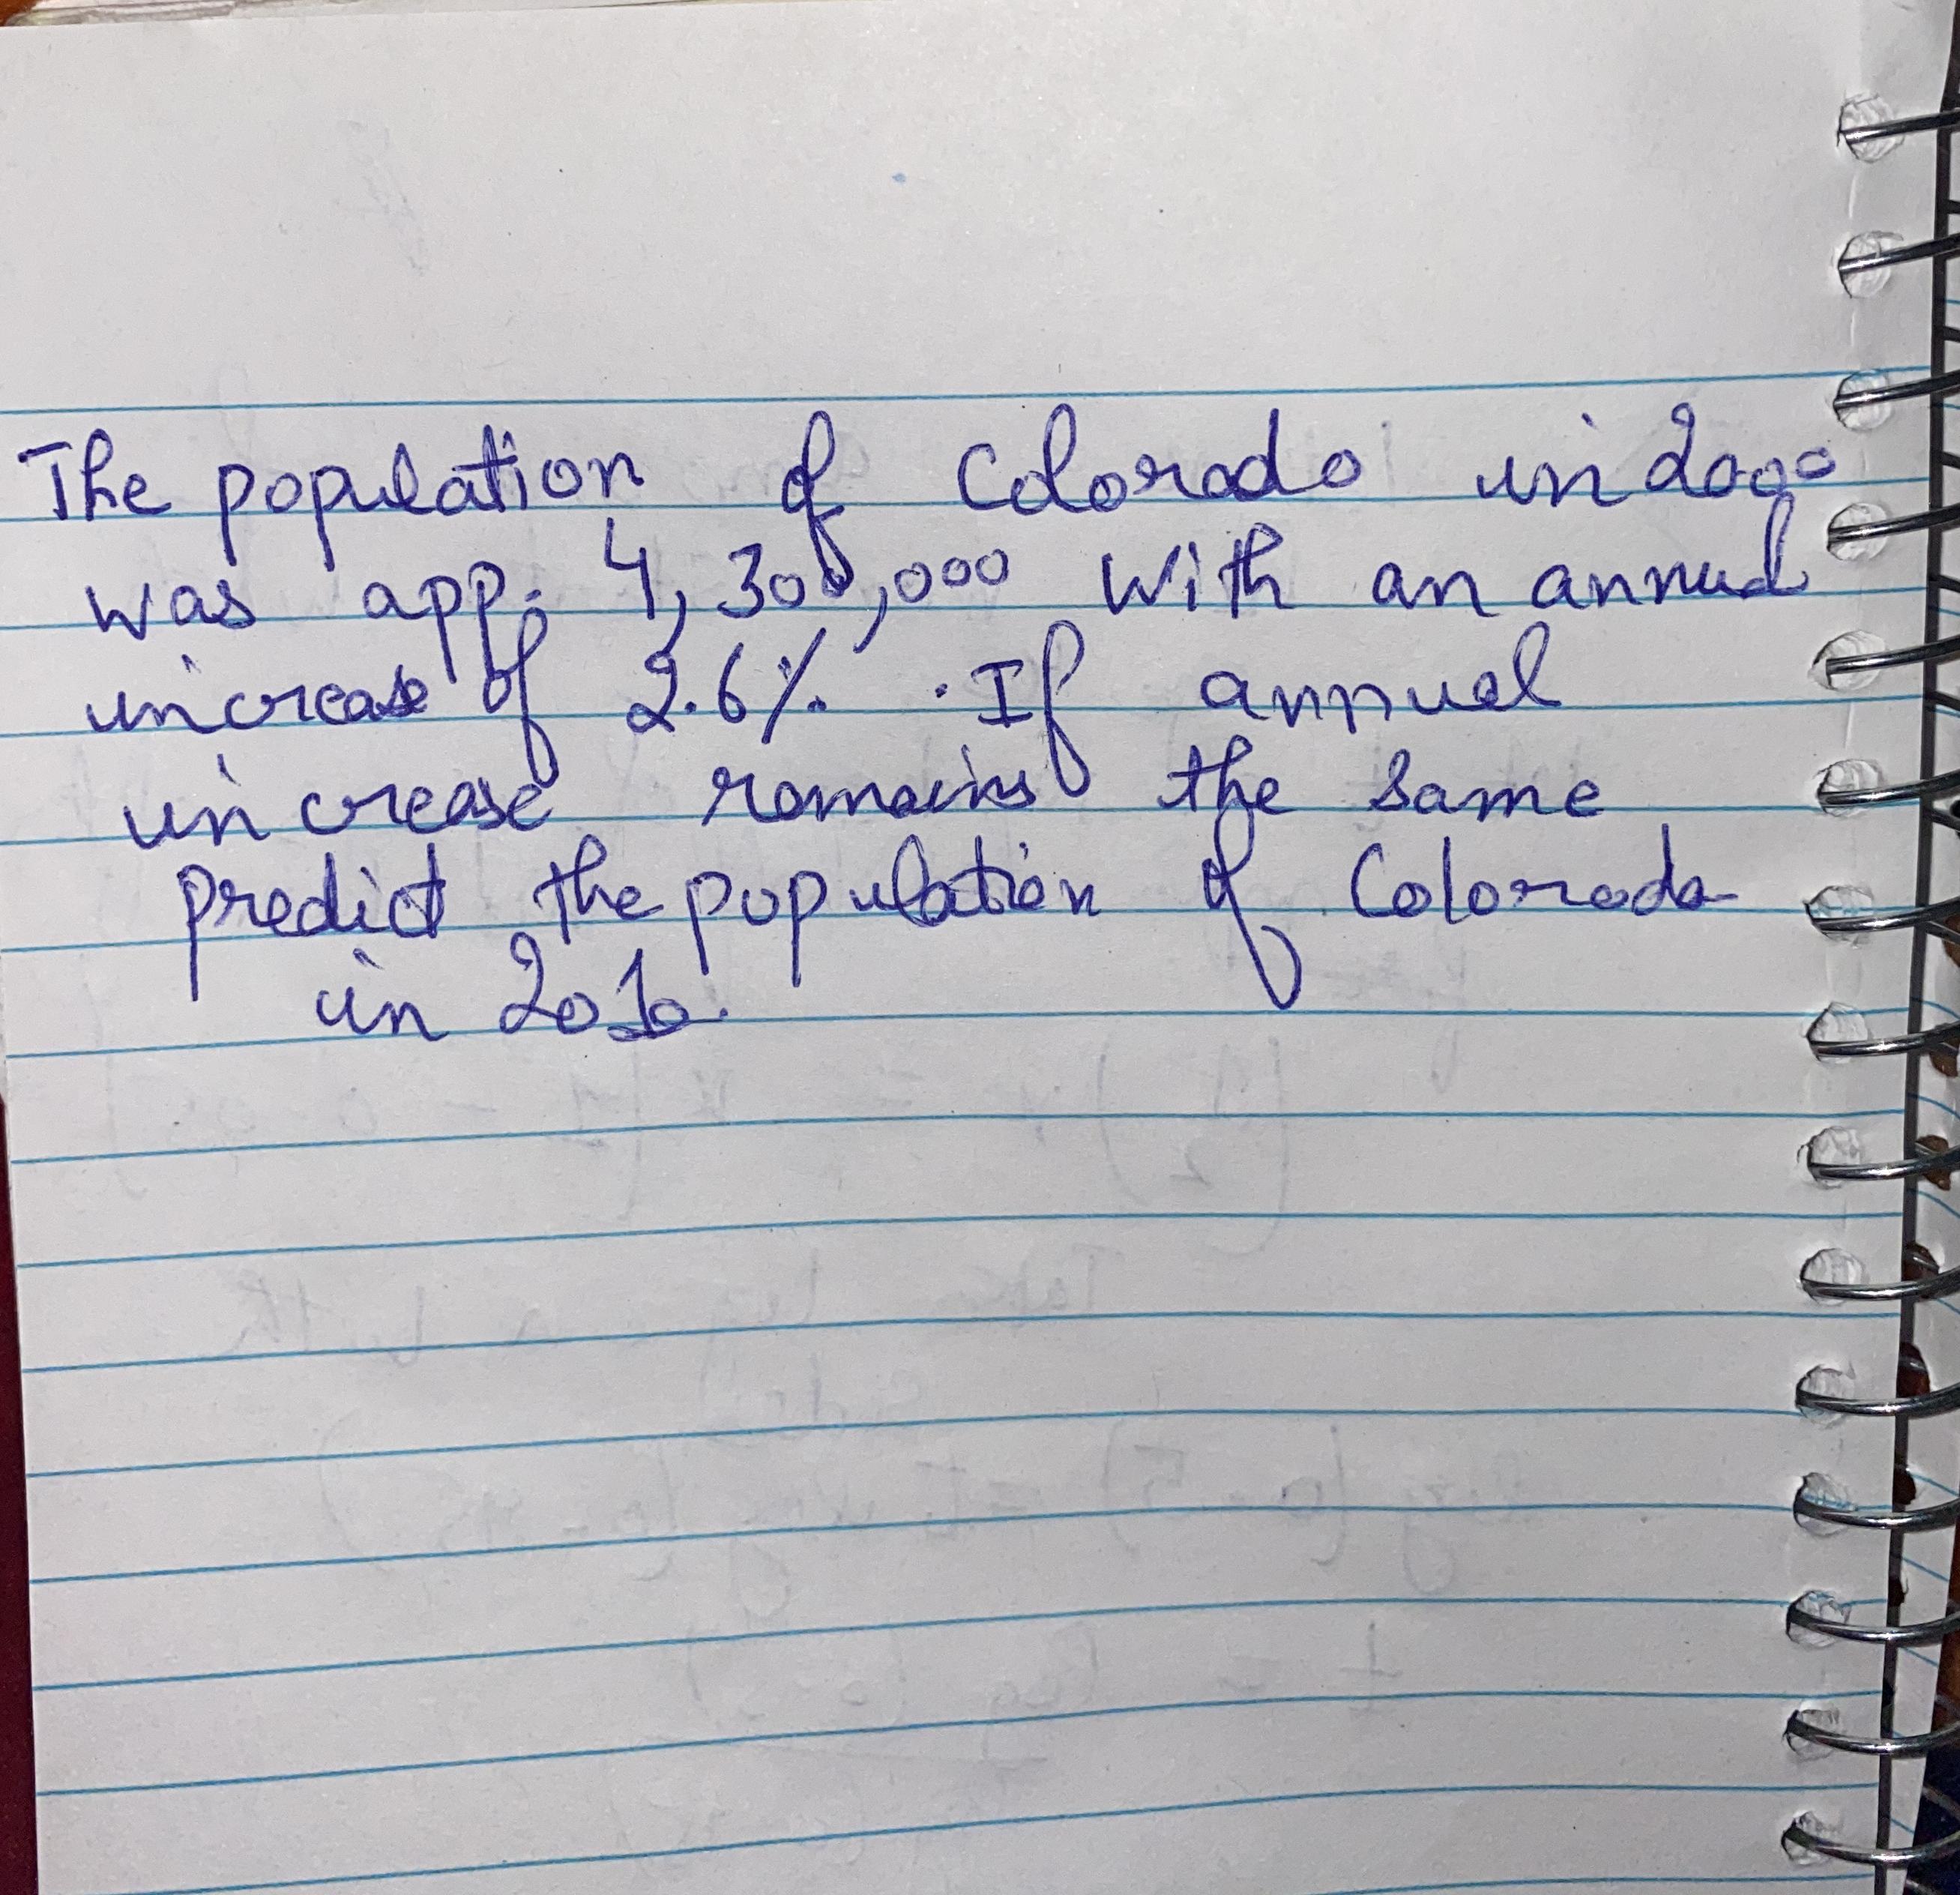 The population of Colorado in 2000
was app. 4,300,000 with an annual
increase of 2.6%. If annual
increase remains the same
predict the population of Colorado
in 2010.